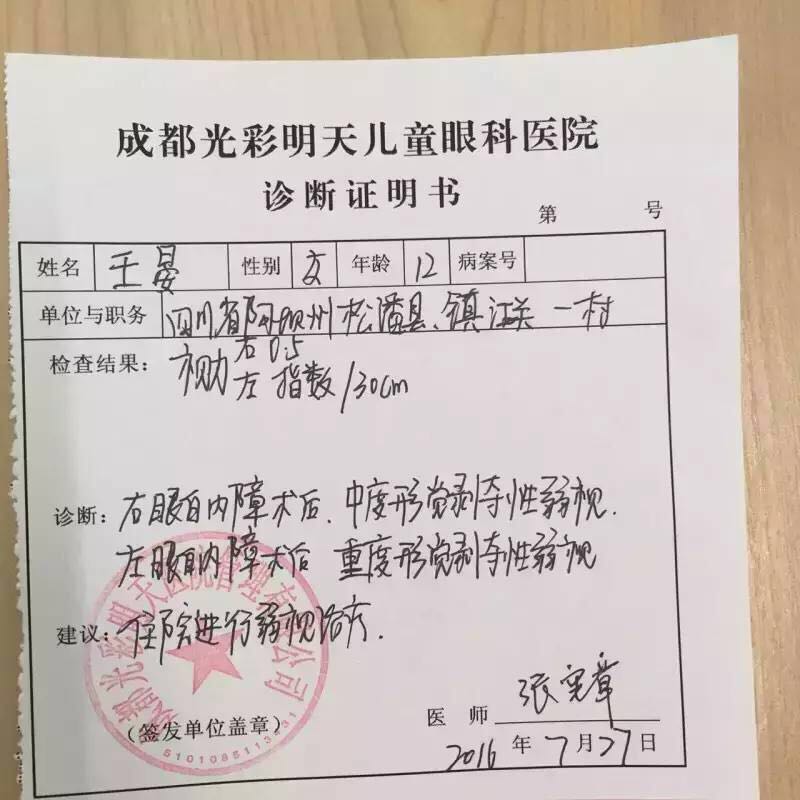 成都光彩明天儿童眼科医院
诊断证明书
第 号
姓名 王晏 性别 女 年龄 12 病案号
单位与职务 四川省阿坝州松潘县、镇江关一村
检查结果: 视力 右 0.5
左 指数/30cm
诊断: 右眼白内障术后、中度形觉剥夺性弱视.
左眼白内障术后 重度形觉剥夺性弱视
建议: 住院进行弱视治疗.
成都光彩明天医院管理有限公司
5101085113431
(签发单位盖章)
医 师 张宪章
2016 年 7 月 27 日